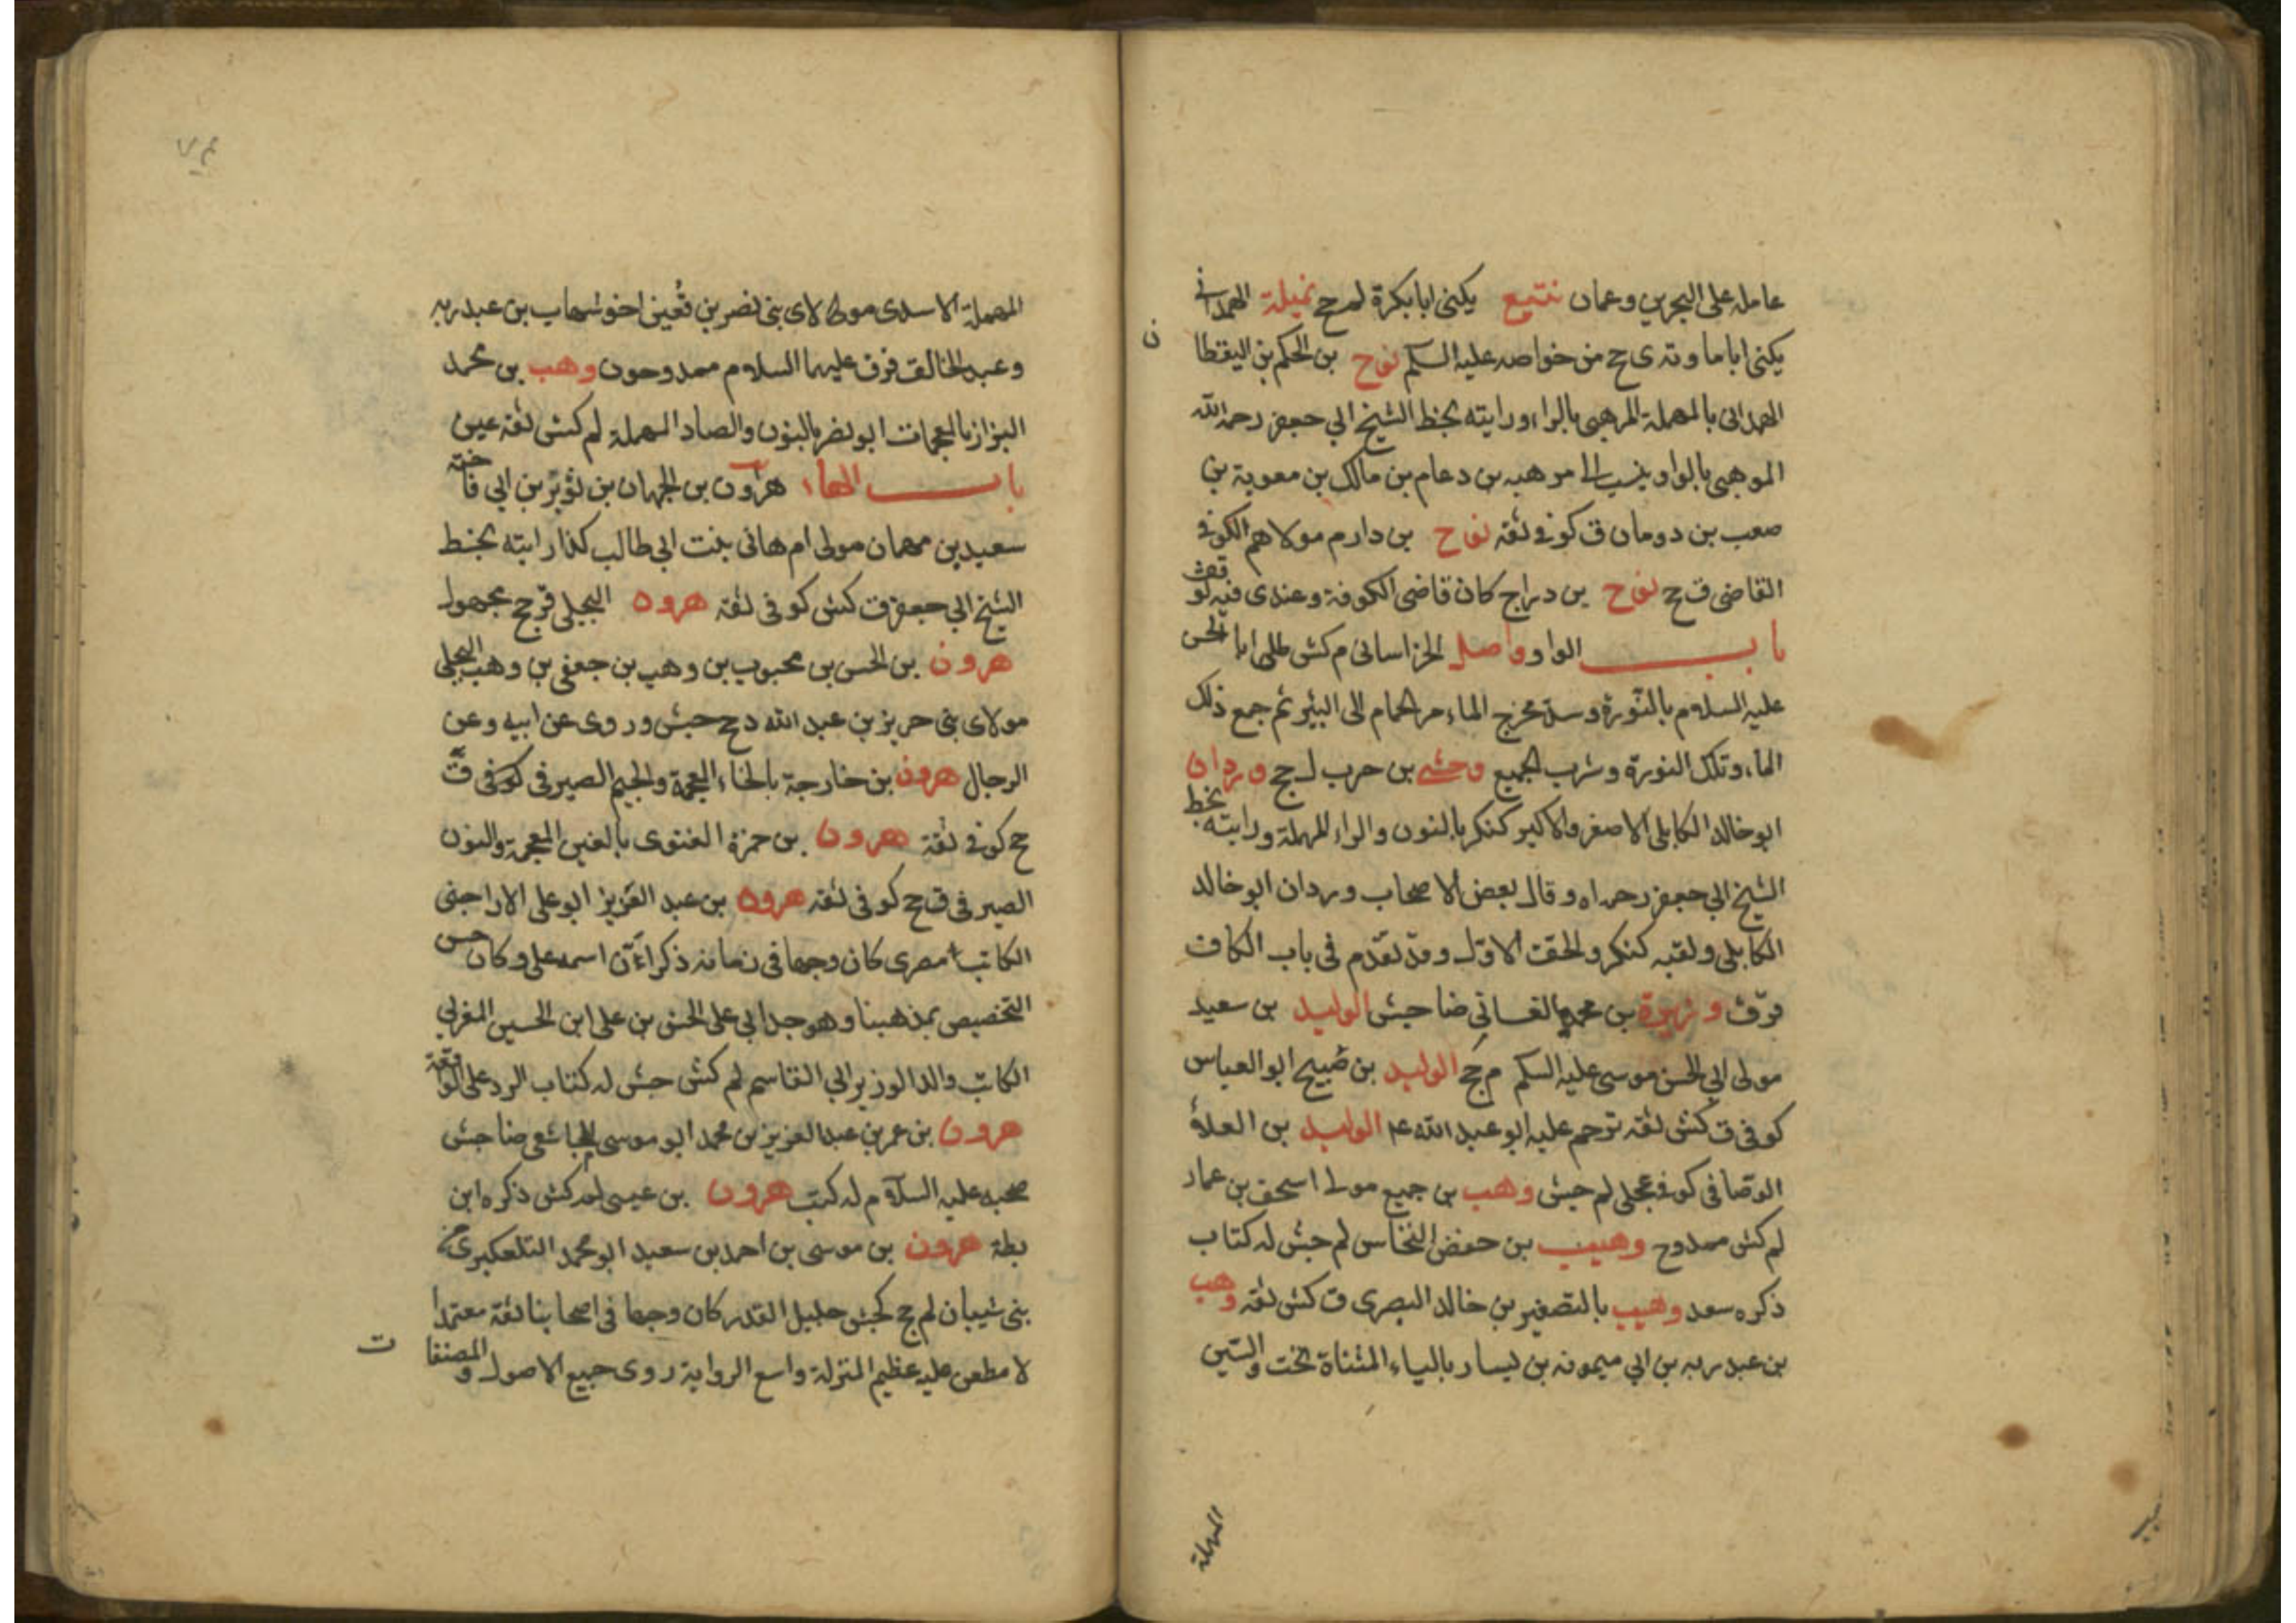 عامله على البحرين وعمان نتيع يكنى ابا بكرة ل جح نميلة الهمداني
يكنى اباما وتد ى ح من خواصه عليه السلم نوح بن الحكم بن اليقطا ن
الهمداني بالمهملة المرهبى بالراء ورايته بخط الشيخ ابي جعفر رحمه الله
الموهبى بالواو ينسب الى موهبه بن دعام بن مالك بن معوية بن
صعب بن دومان ق كوفي ثقه نوح بن دارم مولاهم الكوفي
القاضى ق ح نوح بن دراج كان قاضى الكوفة وعندى فيه توقف
باب الواو واصل الخراسانى م كش طلى ابا الحسن
عليه السلام بالنورة وسد مخرج الماء من الحمام الى البئر ثم جمع ذلك
الماء وتلك النورة وشرب الجميع وحشى بن حرب ل جح وردان
ابو خالد الكابلى الاصغر والاكبر كنكر بالنون والراء المهملة ورايته بخط
الشيخ ابي جعفر رحمه اه وقال بعض الاصحاب وردان ابو خالد
الكابلى ولقبه كنكر والحقت الاول وقد تقدم فى باب الكاف
قر ق وزيرة بن محمد الغسانى ضا جش الوليد بن سعيد
مولى ابي الحسن موسى عليه السلم م جح الوليد بن صبيح ابو العباس
كوفى ق كش ثقه ترحم عليه ابو عبد الله عم الوليد بن العلاء
الوصافى كوفى عجلى لم جش وهب بن جميع مولى اسحق بن عمار
لم كش ممدوح وهيب بن حفص النخاس لم جش له كتاب
ذكره سعد وهيب بالتصغير بن خالد البصرى ق كش ثقه وهب
بن عبد ربه بن ابي ميمونه بن يسار بالياء المثناة تحت والسين
المهملة
المهملة الاسدى مولى لاى بنى نصر بن قعين اخو شهاب بن عبد ربه
وعبد الخالق قر ق عليهما السلام ممدوحون وهب بن محمد
البزاز بالمعجمات ابو نصر بالنون والصاد المهملة لم كش ثقه عين
باب الهاء هرون بن الجهان بن ثوير بن ابي فاخته
سعيد بن جهمان مولى ام هانى بنت ابي طالب كذا رايته بخط
الشيخ ابي جعفر ق كش كوفى ثقه هرون البجلى قر جح مجهول
هرون بن الحسن بن محبوب بن وهب بن جعفر بن وهب البجلى
مولاى بنى حريز بن عبد الله دح جش وروى عن ابيه وعن
الرجال هرون بن خارجة بالخاء المعجمة والجيم الصيرفى كوفى ق
ح كوفى ثقة هرون بن حمزة الغنوى بالغين المعجمة والنون
الصيرفى ق جح كوفى ثقه هرون بن عبد العزيز ابو على الاراجنى
الكاتب مصرى كان وجها فى زمانه ذكرا ان اسمه على وكان حسن
التخصيص بمذهبنا وهو جد ابي على الحسن بن على ابن الحسين المغربي
الكاتب والد الوزير ابي القاسم لم كش جش له كتاب الرد على الواقفة
هرون بن عمر بن عبد العزيز بن محمد ابو موسى المجاشعى ضا جش
صحبه عليه السلام له كتب هرون بن عيسى لم كش ذكره ابن
بطة هرون بن موسى بن احمد بن سعيد ابو محمد التلعكبرى من
بنى شيبان لم جح كجش جليل القدر كان وجها فى اصحابنا ثقة معتمدا
لا مطعن عليه عظيم المنزلة واسع الرواية روى جميع الاصول والمصنفا ت